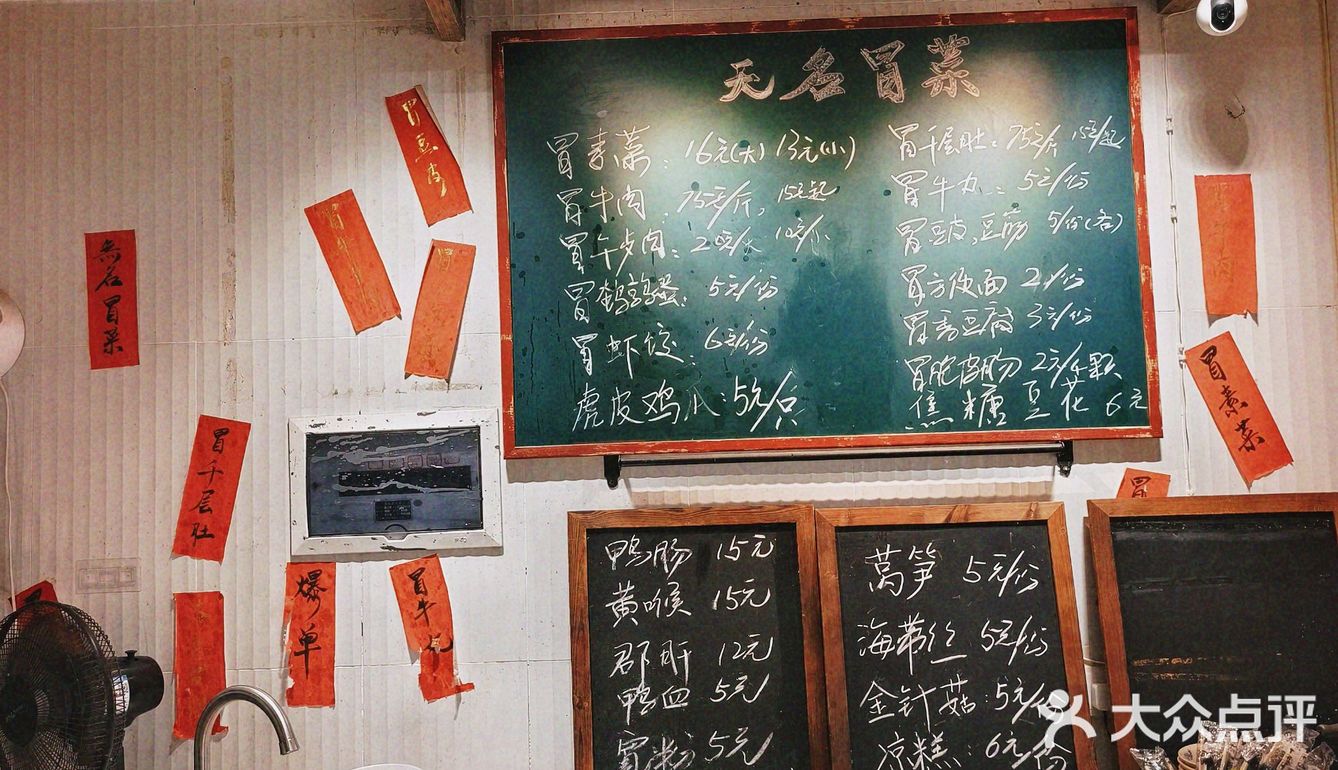 无名冒菜
冒素菜：16元(大) 13元(小)
冒牛肉：75元/斤，15元起
冒牛肉：20元/大 10元/小
冒鹌鹑蛋：5元/份
冒虾饺：6元/份
虎皮鸡爪：5元/只
冒千层肚：75元/斤 15元/起
冒牛丸：5元/份
冒豆皮、豆筋 5/份(各)
冒方便面 2/份
冒香豆腐 3元/份
冒脆皮肠 2元/颗
焦糖豆花 6元
鸭肠 15元
黄喉 15元
郡肝 12元
鸭血 5元
宽粉 5元
莴笋 5元/份
海带丝 5元/份
金针菇：5元/份
凉糕：6元/份
無名冒菜
冒豆皮
冒千层肚
爆单
冒牛
冒素菜
冒
大众点评